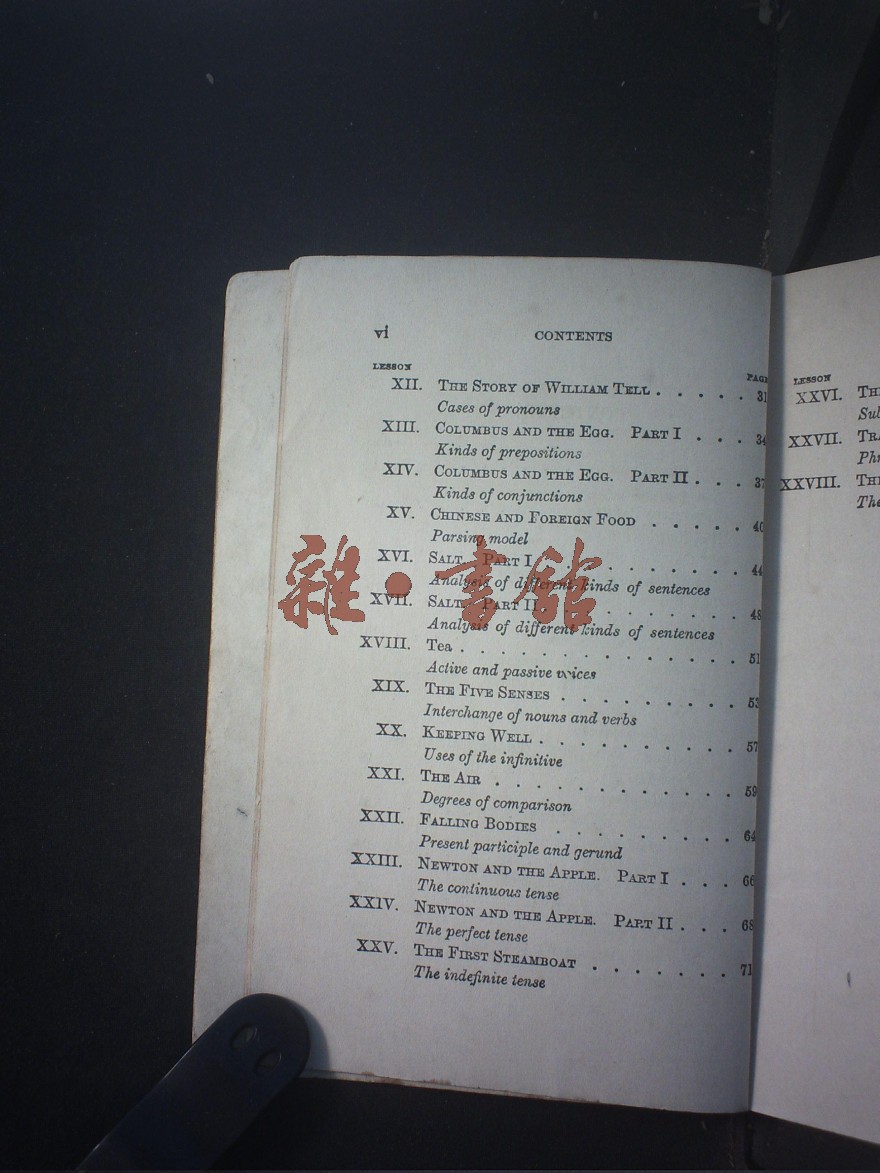 vi CONTENTS
LESSON PAGE
XII. THE STORY OF WILLIAM TELL . . . . . 31
Cases of pronouns
XIII. COLUMBUS AND THE EGG. PART I . . . 34
Kinds of prepositions
XIV. COLUMBUS AND THE EGG. PART II . . . 37
Kinds of conjunctions
XV. CHINESE AND FOREIGN FOOD . . . . . 40
Parsing model
XVI. SALT. PART I . . . . . . . . 44
Analysis of different kinds of sentences
XVII. SALT. PART II . . . . . . . . 48
Analysis of different kinds of sentences
XVIII. Tea . . . . . . . . . . . . 51
Active and passive voices
XIX. THE FIVE SENSES . . . . . . . . 53
Interchange of nouns and verbs
XX. KEEPING WELL . . . . . . . . . 57
Uses of the infinitive
XXI. THE AIR . . . . . . . . . . 59
Degrees of comparison
XXII. FALLING BODIES . . . . . . . . 64
Present participle and gerund
XXIII. NEWTON AND THE APPLE. PART I . . . 66
The continuous tense
XXIV. NEWTON AND THE APPLE. PART II . . . 68
The perfect tense
XXV. THE FIRST STEAMBOAT . . . . . . . 71
The indefinite tense
雜·書館
LESSON
XXVI.
XXVII.
XXVIII.